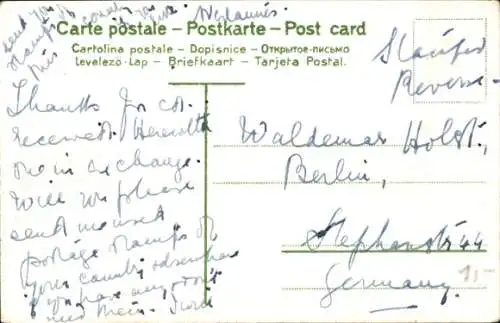 send you
stamps of country
this
Carte postale – Postkarte – Post card
Cartolina postale – Dopisnice – Открытое письмо
Levelező-Lap – Briefkaart – Tarjeta Postal.
Stamped
Reverse
Thanks for cd.
received. Herewith
one in exchange.
Will you please
send me used
postage stamps of
your country
you have any don't
send them.
Waldemar Holst,
Berlin,
Stephanstr 44
Germany.
1,-